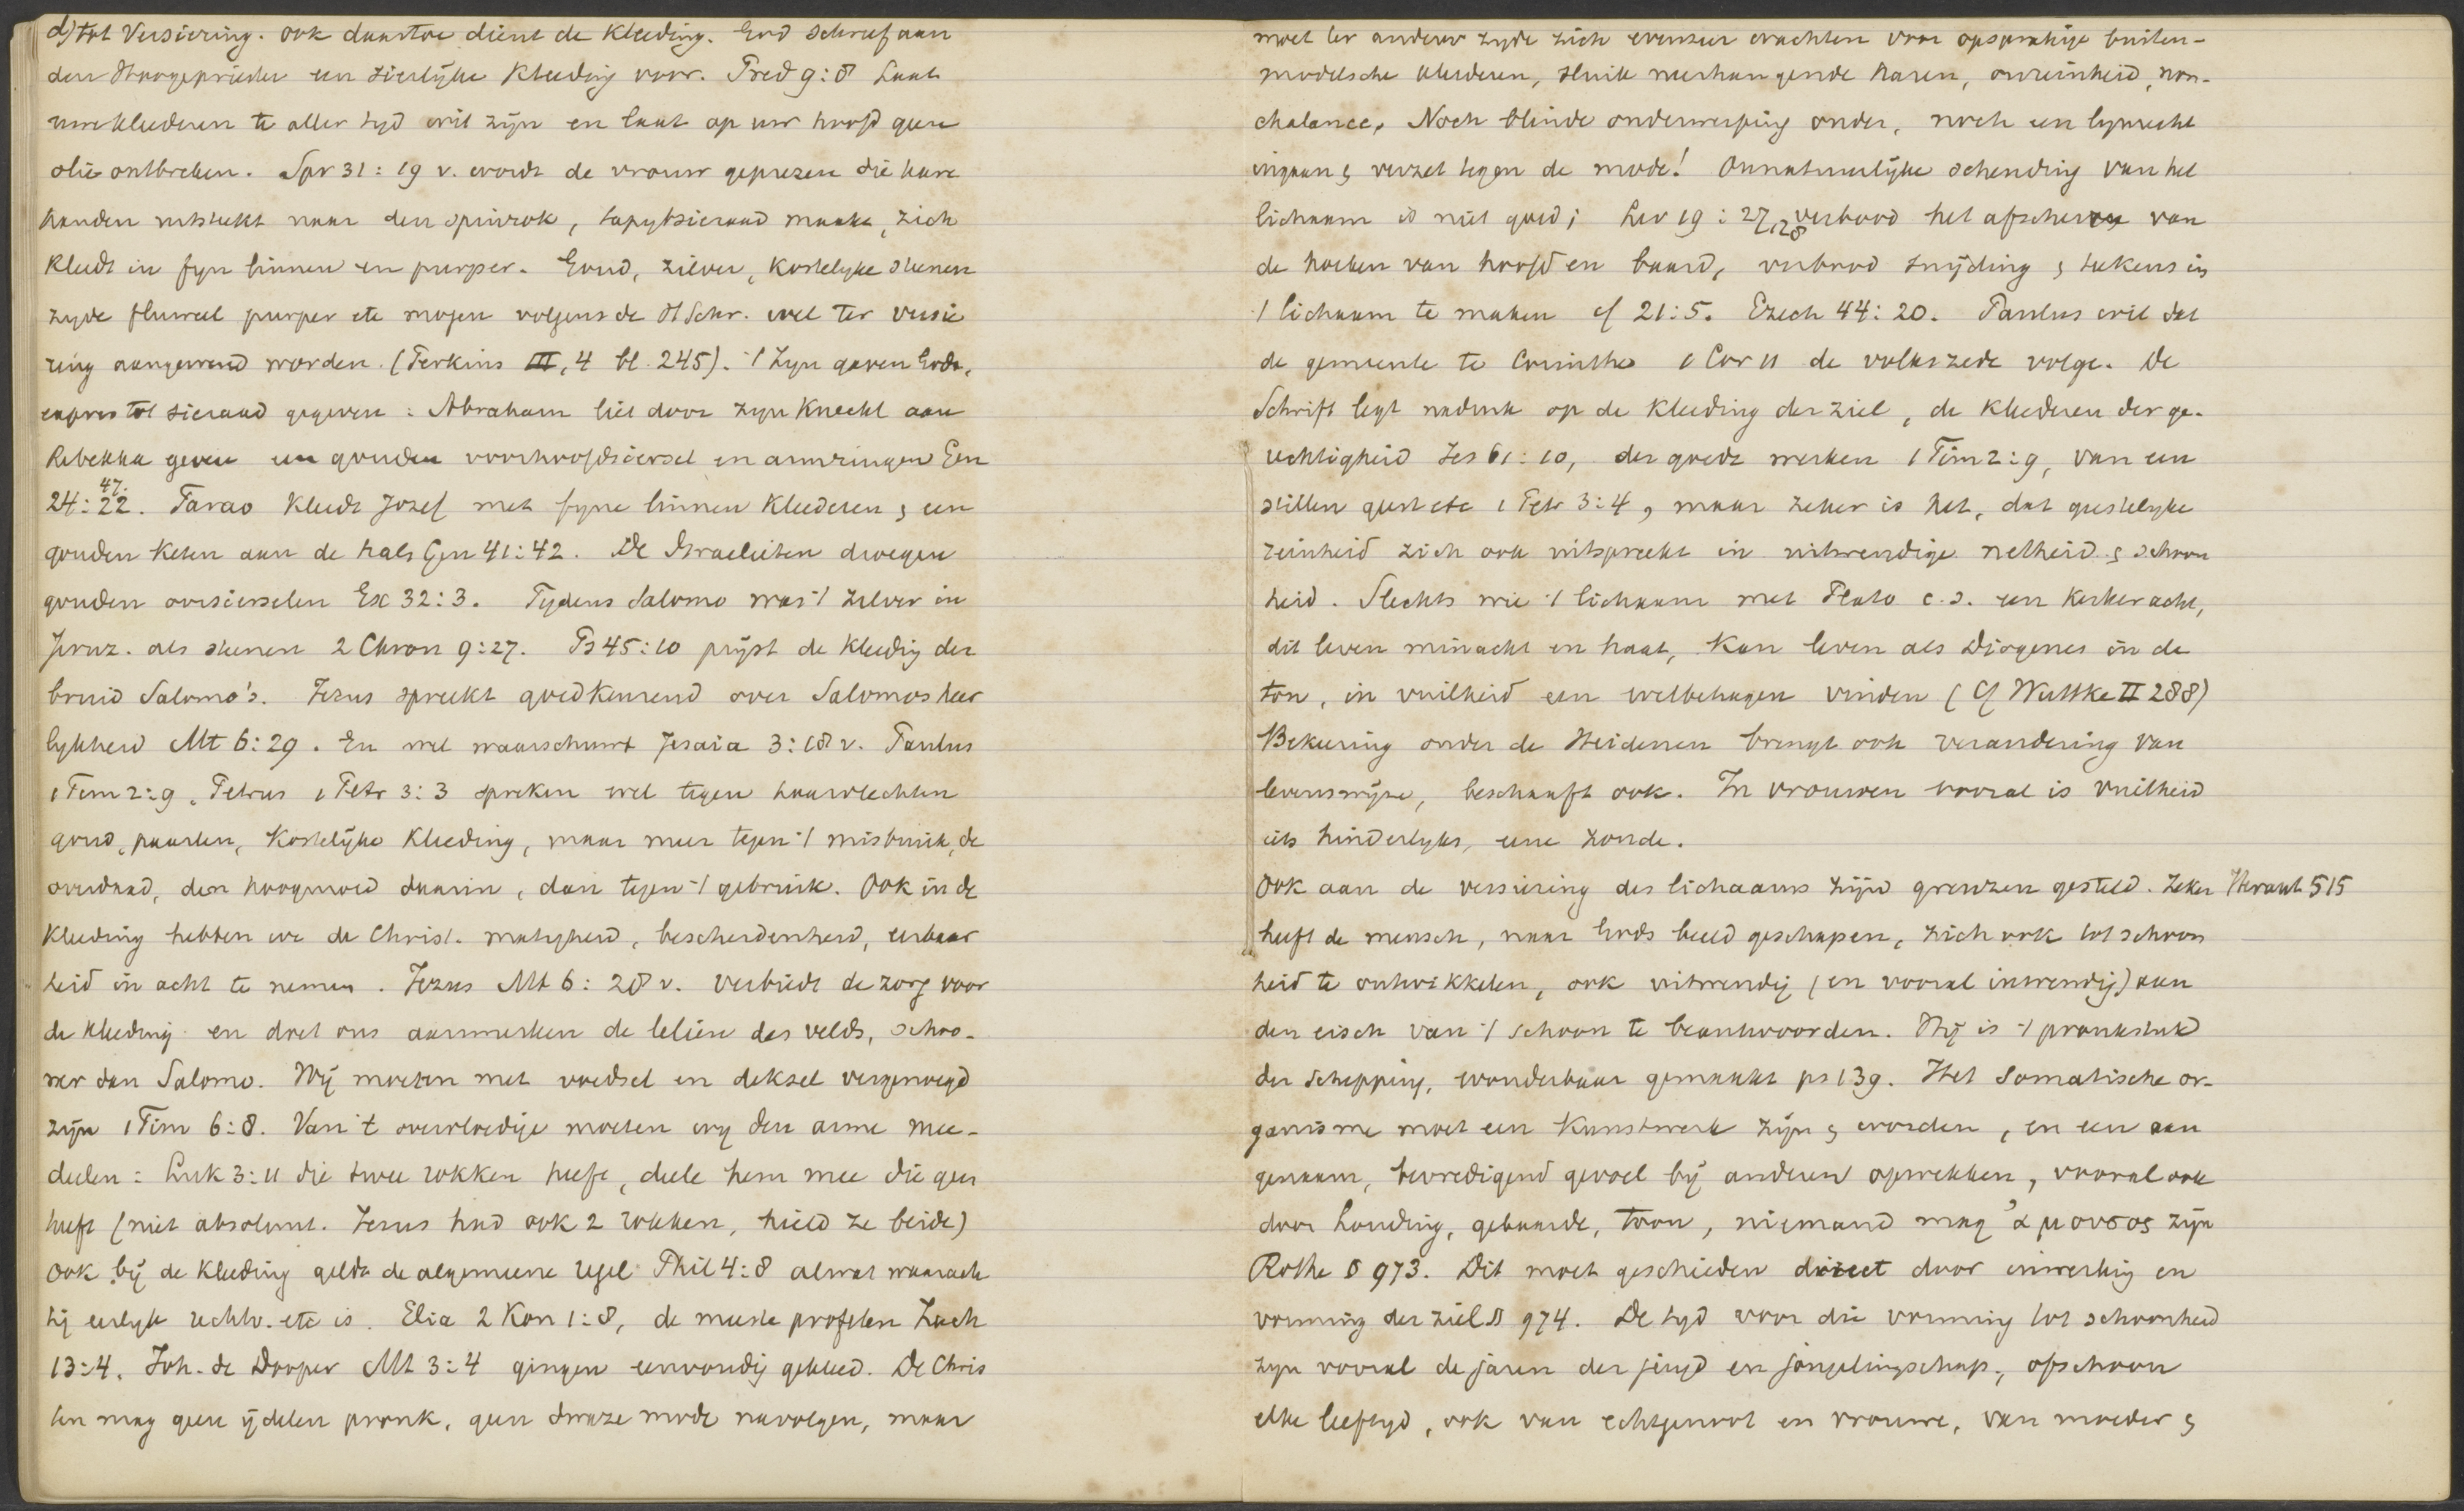 d) tot Versiering. ook daartoe dient de kleeding. God schreef aan
den Hoogepriester een sierlijke kleeding voor. Pred 9:8 Laat
uwe kleederen te aller tyd wit zijn en laat op uw hoofd geen
olie ontbreken. Spr 31:19 v. wordt de vrouw geprezen die hare
handen uitstrekt naar den spinrok, tapytsieraad maakt, zich
kleedt in fyn linnen en purper. Goud, zilver, kostelyke steenen
zyde fluweel purper etc mogen volgens de H Schr. wel ter versie
ring aangewend worden. (Perkins III, 4 bl. 245). 't Zyn gaven Gods,
expres tot sieraad gegeven: Abraham liet door zyn knecht aan
Rebekka geven een gouden voorhoofdsiersel en armringen Gen
24:22. 47. Farao kleedt Jozef met fyne linnen kleederen & een
gouden keten aan de hals Gen 41:42. De Israelieten droegen
gouden oorsierselen Ex 32:3. Tydens Salomo was 't zilver in
Jeruz. als steenen 2 Chron 9:27. Ps 45:10 prijst de kleeding der
bruid Salomo's. Jezus spreekt goedkeurend over Salomos heer
lykheid Mt 6:29. En wel waarschuwt Jesaia 3:18 v. Paulus
1 Tim 2:9, Petrus 1 Petr 3:3 spreken wel tegen haarvlechten
goud, paarlen, kostelijke kleeding, maar meer tegen 't misbruik, de
overdaad, den hoogmoed daarin, dan tegen 't gebruik. Ook in de
kleeding hebben we de Christ. matigheid, bescheidenheid, eerbaar
heid in acht te nemen. Jezus Mt 6:28 v. verbiedt de zorg voor
de kleeding en doet ons aanmerken de leliën des velds, schoo-
ner dan Salomo. Wij moeten met voedsel en deksel vergenoegd
zijn 1 Tim 6:8. Van 't overvloedige moeten wy den arme mee-
deelen: Luk 3:11 die twee rokken heeft, deele hem mee die geen
heeft (niet absoluut. Jezus had ook 2 rokken, hield ze beide)
Ook bij de kleeding geldt de algemeene regel Phil 4:8 alwat waarach
tig eerlyk rechtv. etc is. Elia 2 Kon 1:8, de meeste profeten Zach
13:4. Joh. de Dooper Mt 3:4 gingen eenvoudig gekleed. De Chris
ten mag geen ijdelen pronk, geen dwaze mode navolgen, maar
moet ter anderer zyde zich evenzeer wachten voor opspraakige buiten-
modelsche kleederen, sluik neerhangende haren, onreinheid, non-
chalance. Noch blinde onderwerping onder, noch een lynrecht
ingaan & verzet tegen de mode! Onnatuurlijke schending van het
lichaam is niet goed; Lev 19:27,28 verbood het afscheren van
de hoeken van hoofd en baard, verbood snijding & teekens in
't lichaam te maken cf 21:5. Ezech 44:20. Paulus wil dat
de gemeente te Corinthe 1 Cor 11 de volkszede volge. De
Schrift legt nadruk op de kleeding der ziel, de kleederen der ge-
rechtigheid Jes 61:10, der goede werken 1 Tim 2:9, van een
stillen geest etc 1 Petr 3:4, maar zeker is het, dat geestelyke
reinheid zich ook uitspreekt in uitwendige netheid & schoon
heid. Slechts wie 't lichaam met Plato c.s. een kerker acht,
dit leven minacht en haat, kan leven als Diogenes in de
ton, in vuilheid een welbehagen vinden (Cf Wuttke II 288)
Bekeering onder de Heidenen brengt ook verandering van
levenswijze, beschaaft ook. In vrouwen vooral is vuilheid
iets hinderlyks, eene zonde.
Ook aan de versiering des lichaams zijn grenzen gesteld. Zeker Heraut 515
heeft de mensch, naar Gods beeld geschapen, zich ook tot schoon
heid te ontwikkelen, ook uitwendig (en vooral inwendig) aan
den eisch van 't schoon te beantwoorden. Hij is 't pronkstuk
der Schepping, wonderbaar gemaakt ps 139. Het somatische or-
ganisme moet een kunstwerk zijn & worden, en een aan
genaam, bevredigend gevoel bij anderen opwekken, vooral ook
door houding, gebaarde, toon, niemand mag ἄμουσος zijn
Rothe § 973. Dit moet geschieden direct door inwerking en
vorming der ziel § 974. De tyd voor die vorming tot schoonheid
zyn vooral de jaren der jeugd en jongelingschap, ofschoon
elke leeftyd, ook van echtgenoot en vrouwe, van moeder &